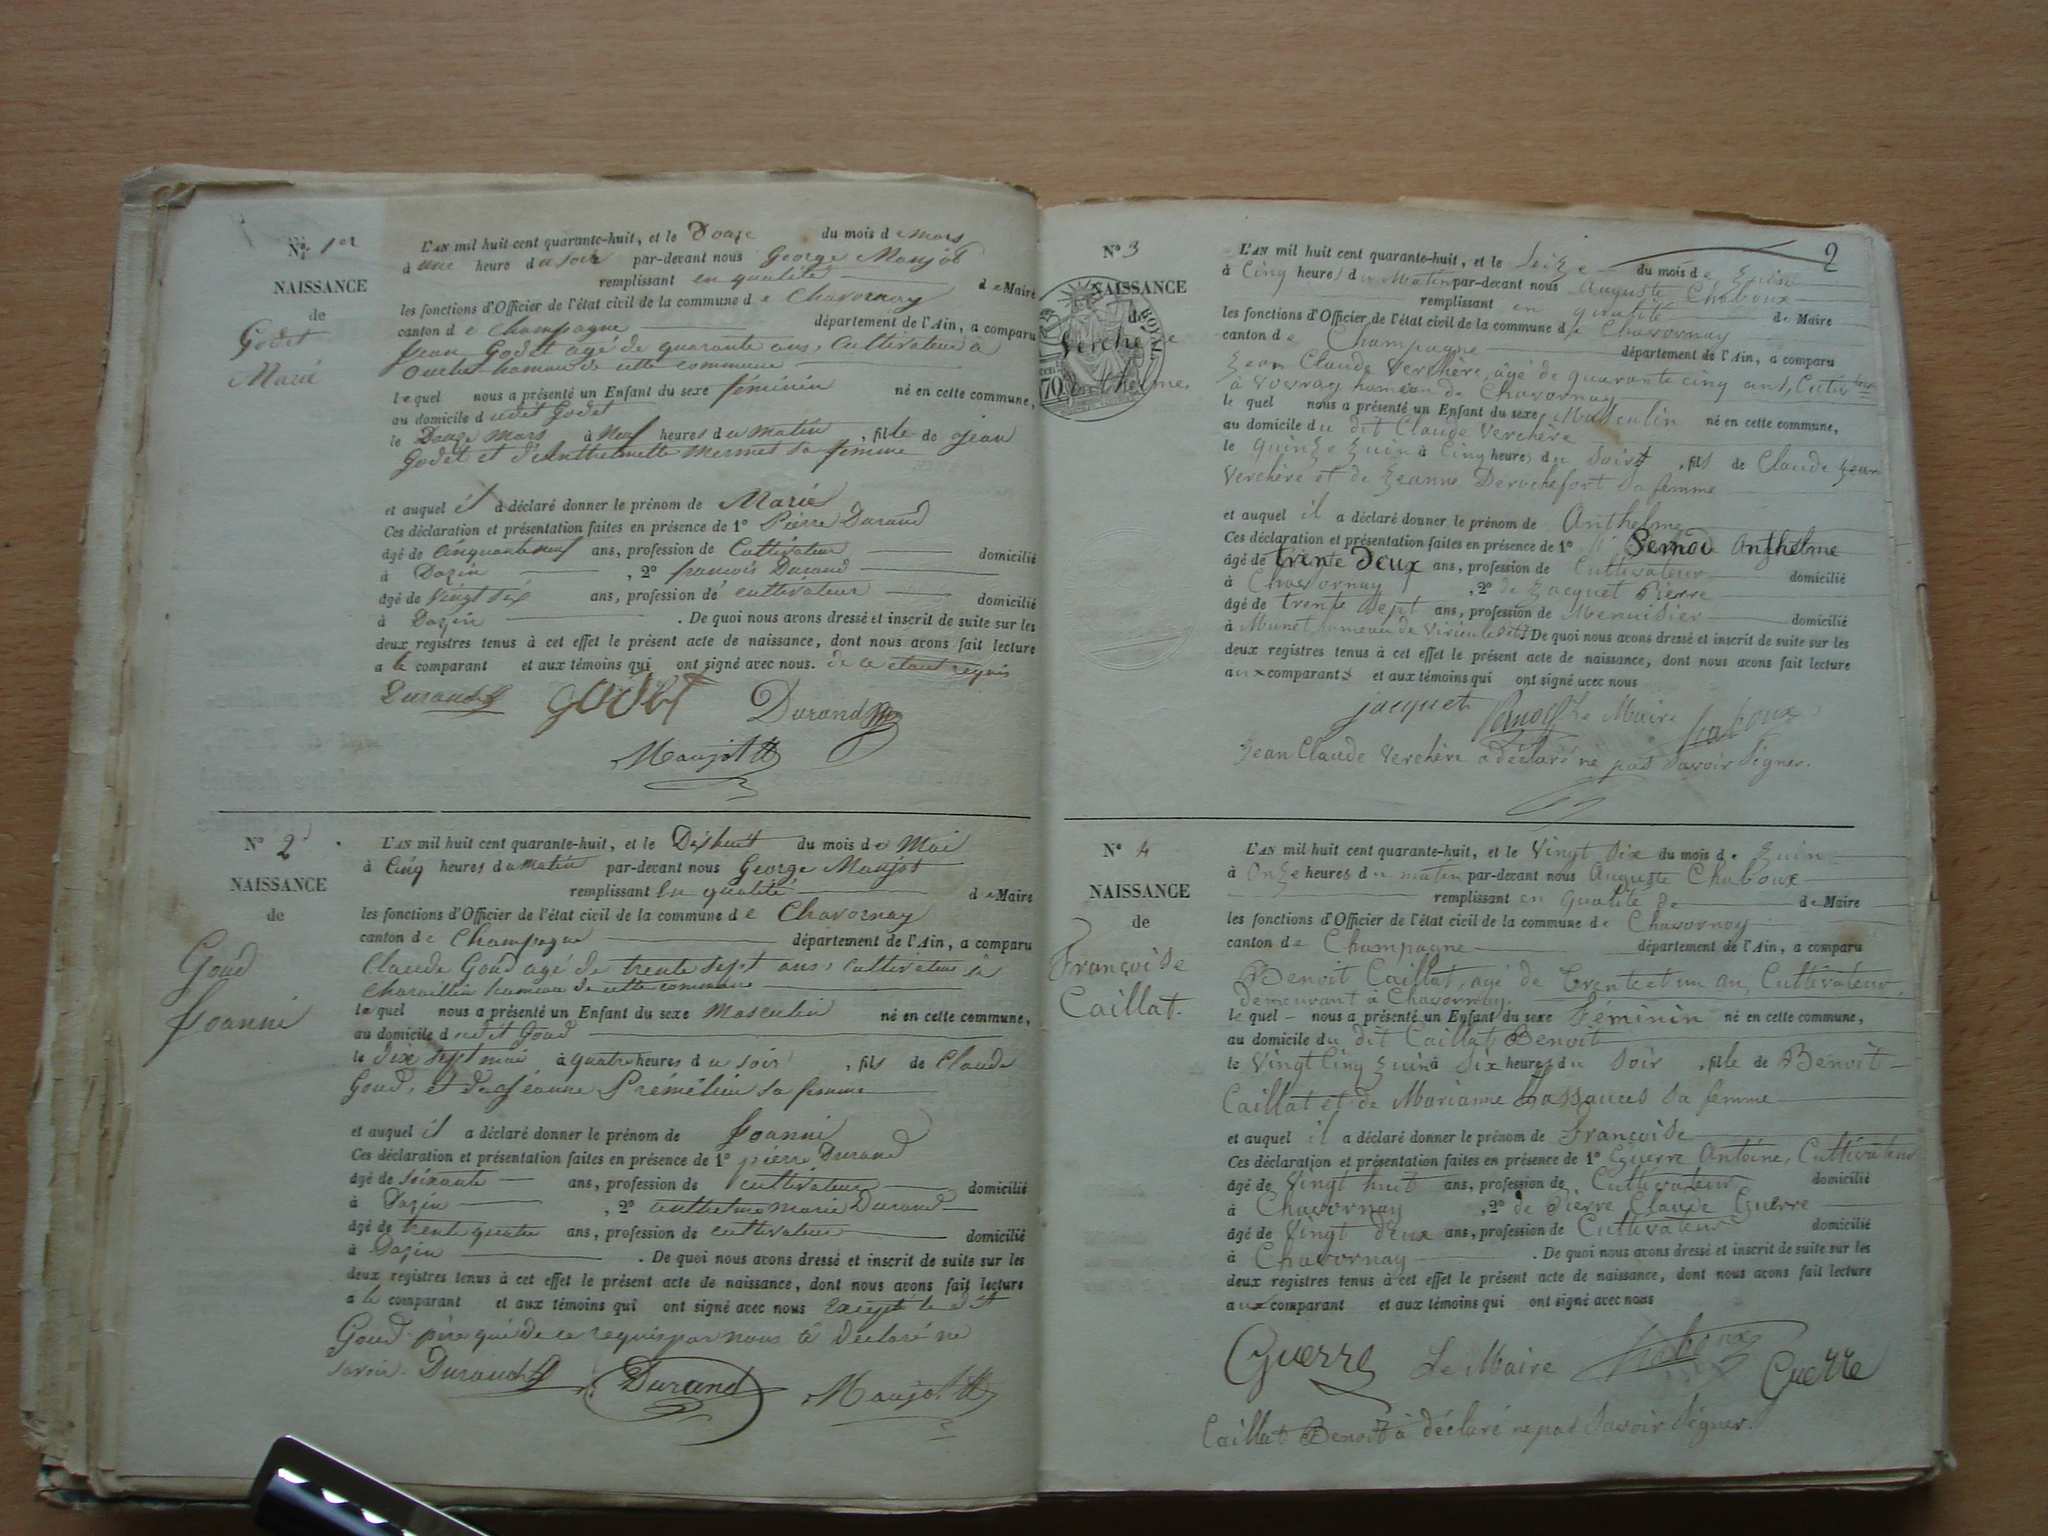 N° 1er
NAISSANCE
de
Godet
Marie
L'AN mil huit cent quarante-huit, et le Douze du mois de mars
à une heure du soir par-devant nous George Maujot
remplissant en qualité de Maire
les fonctions d'Officier de l'état civil de la commune de Chavornay
canton de Champagne département de l'Ain, a comparu
Jean Godet agé de quarante ans, Cultivateur à
hameau de cette commune
lequel nous a présenté un Enfant du sexe féminin né en cette commune,
au domicile dudit Godet
le Douze mars à Neuf heures du matin, fille de Jean
Godet et d'Anthelmette Mermet sa femme
et auquel il a déclaré donner le prénom de Marie
Ces déclaration et présentation faites en présence de 1° Pierre Durand
âgé de Cinquante neuf ans, profession de Cultivateur domicilié
à Dazin, 2° françois Durand
âgé de Vingt six ans, profession de cultivateur domicilié
à Dazin. De quoi nous avons dressé et inscrit de suite sur les
deux registres tenus à cet effet le présent acte de naissance, dont nous avons fait lecture
a le comparant et aux témoins qui ont signé avec nous. de ce étant requis
Durand Godet Durand
Maujot
N° 2
NAISSANCE
de
Goud
Joanni
L'AN mil huit cent quarante-huit, et le Dix huit du mois de Mai
à Cinq heures du matin par-devant nous George Maujot
remplissant En qualité de Maire
les fonctions d'Officier de l'état civil de la commune de Chavornay
canton de Champagne département de l'Ain, a comparu
Claude Goud agé de trente sept ans, cultivateur à
hameau de cette commune
lequel nous a présenté un Enfant du sexe Masculin né en cette commune,
au domicile dudit Goud
le dix sept mai à quatre heures du soir, fils de Claude
Goud, et de Jeanne Prémélien sa femme
et auquel il a déclaré donner le prénom de Joanni
Ces déclaration et présentation faites en présence de 1° pierre Durand
âgé de soixante ans, profession de cultivateur domicilié
à Dazin, 2° anthelme marie Durand
âgé de trente quatre ans, profession de cultivateur domicilié
à Dazin. De quoi nous avons dressé et inscrit de suite sur les
deux registres tenus à cet effet le présent acte de naissance, dont nous avons fait lecture
a le comparant et aux témoins qui ont signé avec nous Excepté le dit
Goud père qui de ce requis par nous a déclaré ne
savoir. Durand Durand Maujot
2
N° 3
NAISSANCE
de
Verchère
Anthelme
L'AN mil huit cent quarante-huit, et le Seize du mois de Juin
à Cinq heures du Matin par-devant nous Auguste Chaboux
remplissant en qualité de Maire
les fonctions d'Officier de l'état civil de la commune de Chavornay
canton de Champagne département de l'Ain, a comparu
Jean Claude Verchère, agé de quarante cinq ans, Cultivateur
à Vovray hameau de Chavornay
le quel nous a présenté un Enfant du sexe Masculin né en cette commune,
au domicile du dit Claude Verchère
le quinze Juin à Cinq heures du soir, fils de Claude Jean
Verchère et de Jeanne Derochefort sa femme
et auquel il a déclaré donner le prénom de Anthelme
Ces déclaration et présentation faites en présence de 1° Pernod Anthelme
âgé de trente deux ans, profession de Cultivateur domicilié
à Chavornay, 2° de Jacquet Pierre
âgé de trente sept ans, profession de Menuisier domicilié
à Munet hameau de Virieu le petit. De quoi nous avons dressé et inscrit de suite sur les
deux registres tenus à cet effet le présent acte de naissance, dont nous avons fait lecture
aux comparants et aux témoins qui ont signé avec nous
jacquet Pernod Le Maire Chaboux
Jean Claude Verchère a déclaré ne pas Savoir Signer.
N° 4
NAISSANCE
de
Françoise
Caillat.
L'AN mil huit cent quarante-huit, et le Vingt Six du mois de Juin
à Onze heures du matin par-devant nous Auguste Chaboux
remplissant en Qualité de de Maire
les fonctions d'Officier de l'état civil de la commune de Chavornay
canton de Champagne département de l'Ain, a comparu
Benoit Caillat, agé de trente et un an, Cultivateur,
demeurant à Chavornay.
le quel nous a présenté un Enfant du sexe Féminin né en cette commune,
au domicile du dit Caillat Benoit
le Vingt Cinq Juin à Six heures du Soir, fille de Benoit
Caillat et de Marianne Chassances sa femme
et auquel il a déclaré donner le prénom de Françoise
Ces déclaration et présentation faites en présence de 1° Guerre Antoine, Cultivateur
âgé de Vingt huit ans, profession de Cultivateur domicilié
à Chavornay, 2° de Pierre Claude Guerre
âgé de Vingt deux ans, profession de Cultivateur domicilié
à Chavornay. De quoi nous avons dressé et inscrit de suite sur les
deux registres tenus à cet effet le présent acte de naissance, dont nous avons fait lecture
aux comparant et aux témoins qui ont signé avec nous
Guerre Le Maire Chaboux Guerre
Caillat Benoit à déclaré ne pas Savoir Signer.